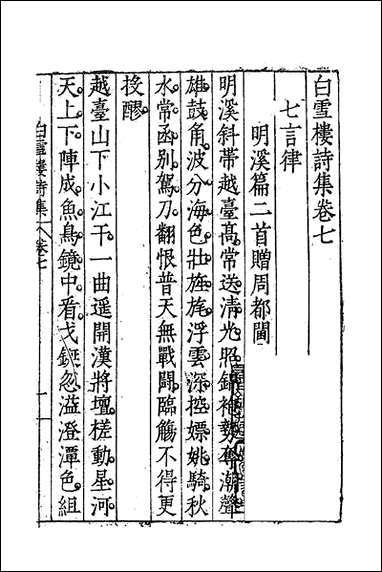 白雪樓詩集卷七
七言律
明溪篇二首贈周都閫
明溪斜帶越臺高常送清光照錦袍勢奪潮聲
雄鼓角波分海色壯旌旄浮雲深控嫖姚騎秋
水常函别駕刀翻恨普天無戰鬭臨觴不得更
投醪
越臺山下小江干一曲遥開漢將壇槎動星河
天上下陣成魚鳥鏡中看戈鋋忽溢澄潭色組
白雪樓詩集 卷七 一